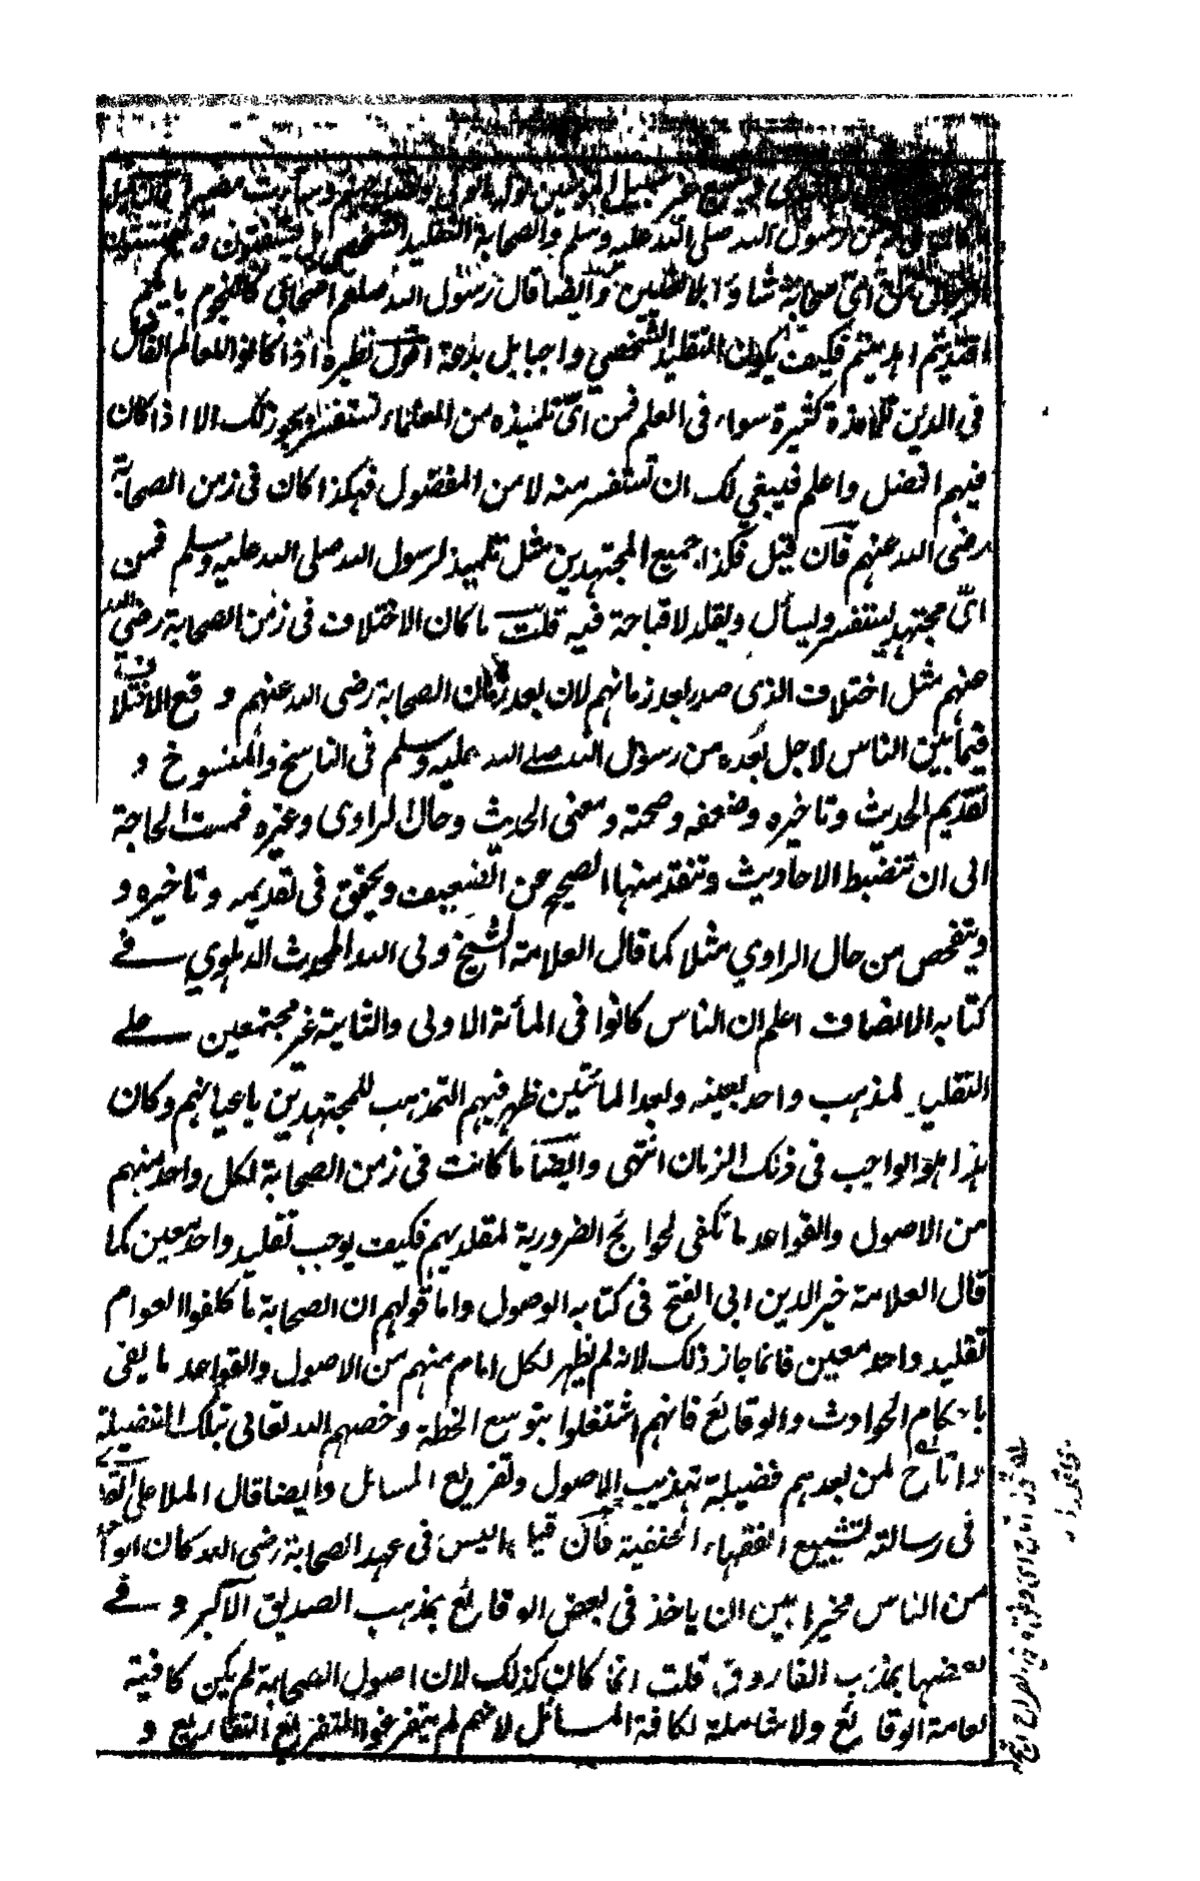 من رسول الله صلى الله عليه وسلم والصحابة التقليد الشخصي بل يستفتون
من اي صحابة شاؤا بلا وايضا قال رسول الله صلعم اصحابي كالنجوم بايهم
اقتديتم اهديتم فكيف يكون التقليد الشخصي واجبا بل بدعة اقول نظيره اذا كانوا للعالم الفاضل
في الدين تلامذة كثيرة سواء في العلم فمن اي تلميذه من العلماء تستفسر ويجوز لك الا اذا كان
فيهم افضل واعلم فينبغي لك ان تستفسر منه لا من المفضول فهكذا كان في زمن الصحابة
رضي الله عنهم فان قيل فكذا جميع المجتهدين مثل تلميذ لرسول الله صلى الله عليه وسلم فمن
اي مجتهد ليستفسر وليسأل ويقلد لا قباحة فيه قلت ما كان الاختلاف في زمن الصحابة رضي الله
عنهم مثل اختلاف الذي صدر بعد زمانهم لان بعد زمان الصحابة رضي الله عنهم وقع الاختلاف
فيما بين الناس لاجل بعده من رسول الله صلى الله عليه وسلم في الناسخ والمنسوخ و
تقديم الحديث وتاخيره وضعفه وصحته ومعنى الحديث وحال الراوي وغيره فمست الحاجة
الى ان تنضبط الاحاديث وتنقد منها الصحيح عن الضعيف ويحقق في تقديمه وتاخيره و
ويتفحص من حال الراوي مثلا كما قال العلامة الشيخ ولي الله المحدث الدهلوي في
كتابه الانصاف اعلم ان الناس كانوا في المأئة الاولى والثانية غير مجتمعين على
التقليد لمذهب واحد بعينه وبعد المائتين ظهر فيهم التمذهب للمجتهدين باعيانهم وكان
هذا هو الواجب في ذلك الزمان انتهى وايضا ما كانت في زمن الصحابة لكل واحد منهم
من الاصول والقواعد ما تكفى لحوائج الضرورية لمقلديهم فكيف يوجب تقليد واحد معين كما
قال العلامة خير الدين ابي الفتح في كتابه الوصول واما قولهم ان الصحابة ما كلفوا العوام
تقليد واحد معين فانما جاز ذلك لانه لم يظهر لكل امام منهم من الاصول والقواعد ما يفى
باحكام الحوادث والوقائع فانهم اشتغلوا بتوسع الخطة وخصهم الله تعالى بتلك الفضيلة
واتاح لمن بعدهم فضيلة تهذيب الاصول وتفريع المسائل وايضا قال الملا علي القاري
في رسالته تشييع الفقهاء الحنفية فان قيل اليس في عهد الصحابة رضي الله كان الواحد
من الناس مخيرا بين ان ياخذ في بعض الوقائع بمذهب الصديق الاكبر و في
بعضها بمذهب الفاروق قلت انما كان كذلك لان اصول الصحابة لم يكن كافية
لعامة الوقائع ولا شاملة لكافة المسائل لانهم لم يتفرغوا للتفريع التفاريع و